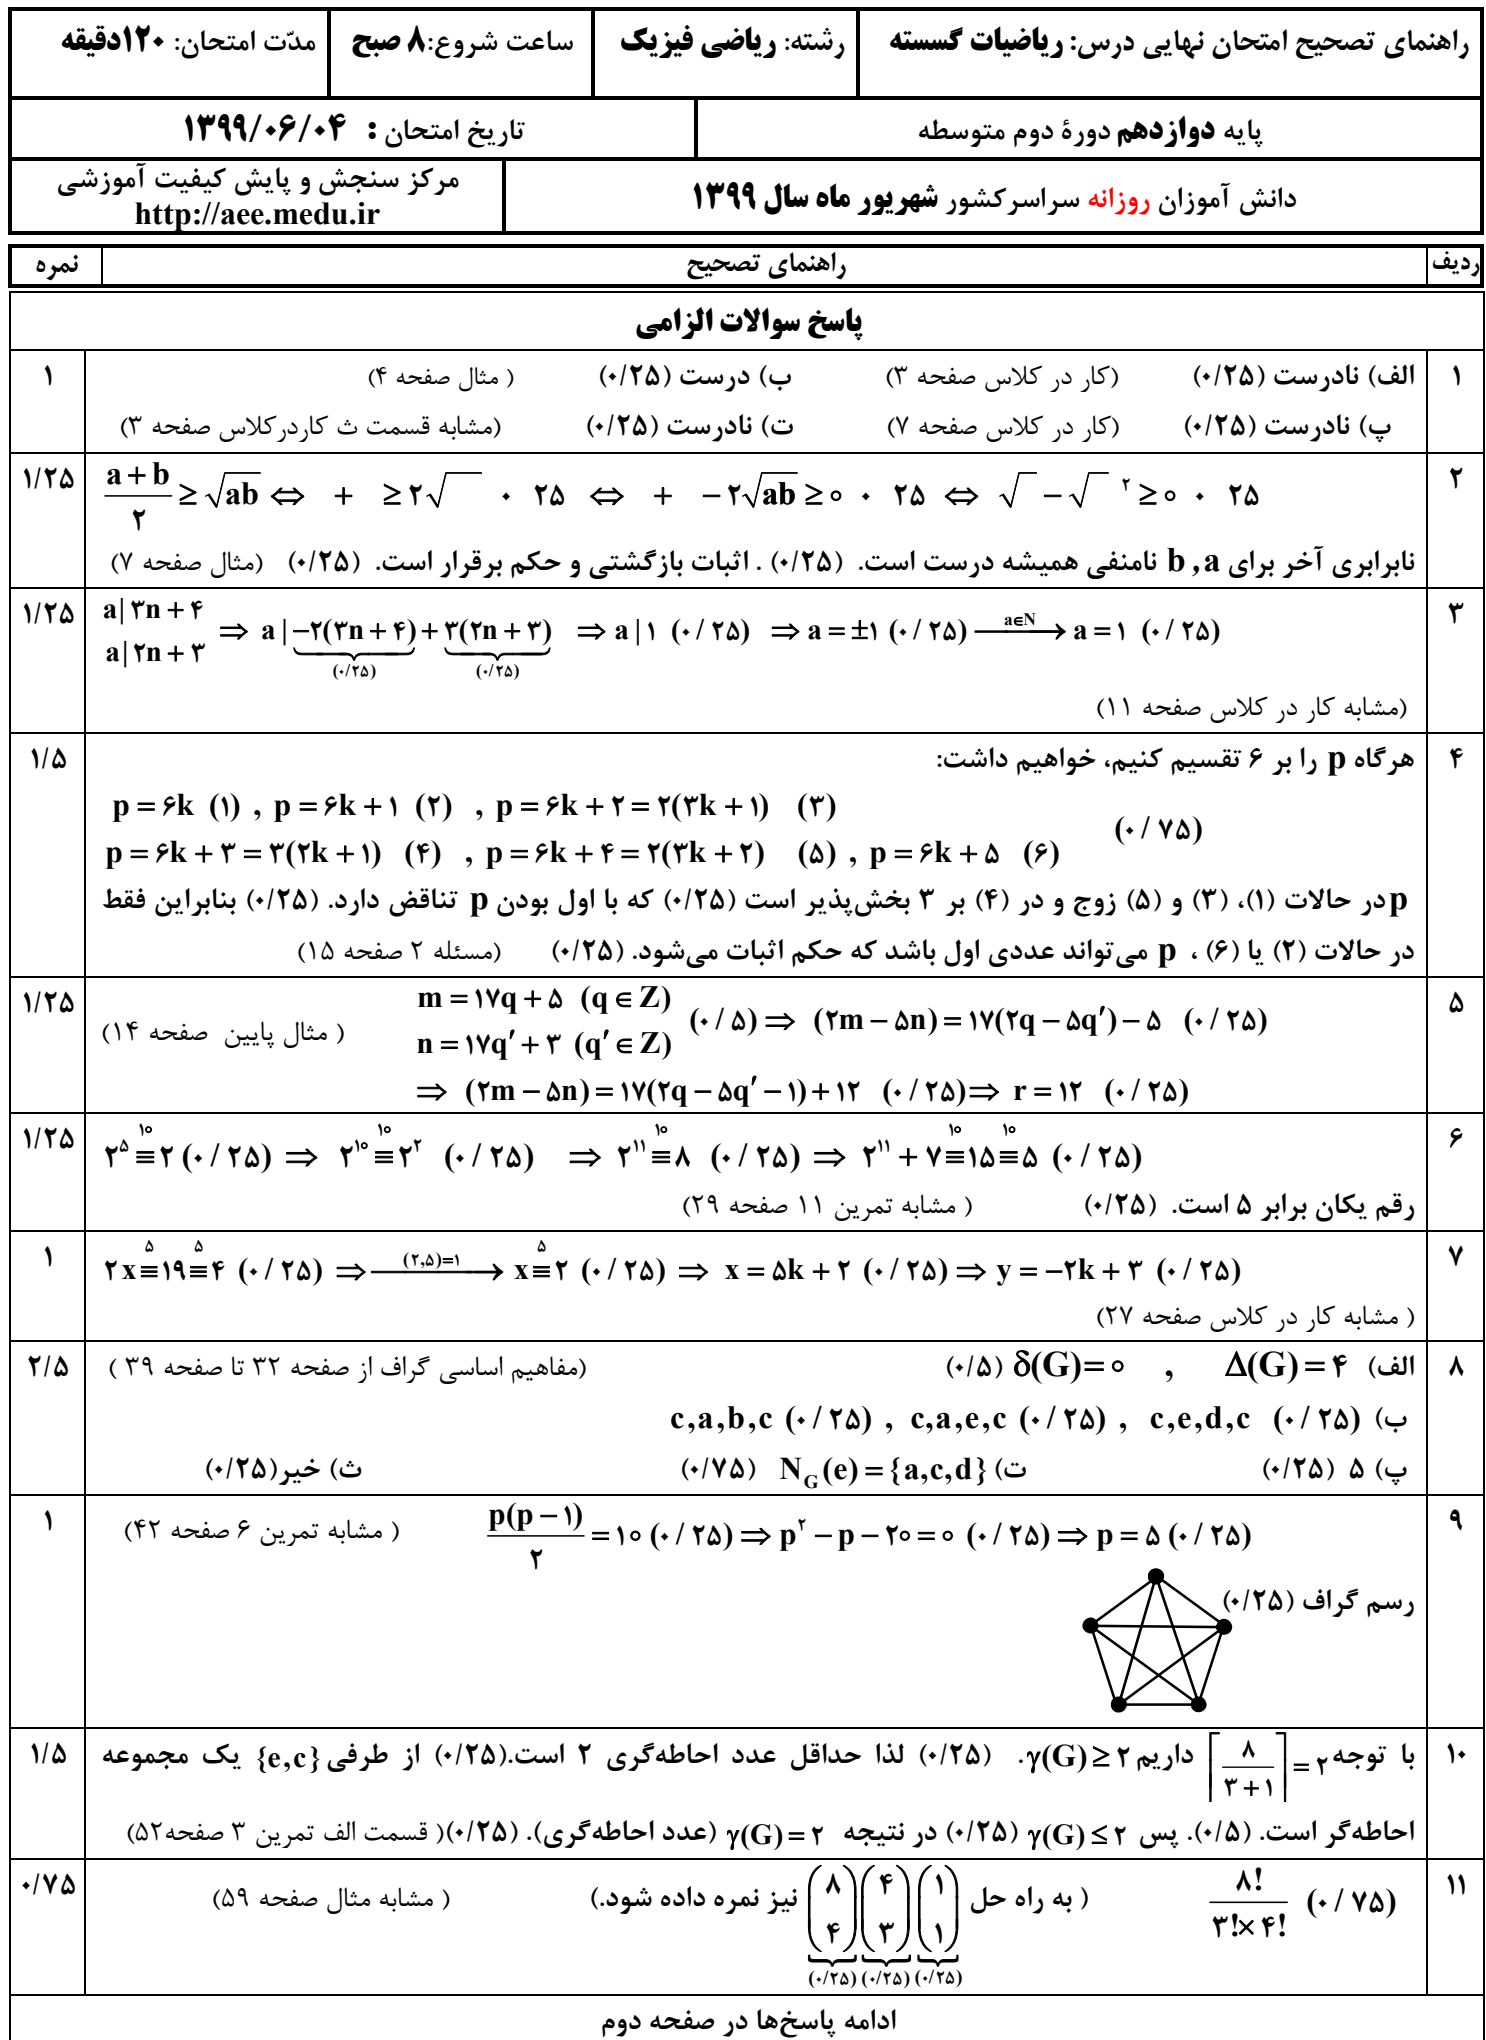 راهنمای تصحیح امتحان نهایی درس: ریاضیات گسسته رشته: ریاضی فیزیک ساعت شروع:۸ صبح مدّت امتحان: ۱۲۰دقیقه
پایه دوازدهم دورهٔ دوم متوسطه تاریخ امتحان : ۱۳۹۹/۰۶/۰۴
دانش آموزان روزانه سراسرکشور شهریور ماه سال ۱۳۹۹ مرکز سنجش و پایش کیفیت آموزشی
http://aee.medu.ir
ردیف راهنمای تصحیح نمره
پاسخ سوالات الزامی
۱ الف) نادرست (۰/۲۵) (کار در کلاس صفحه ۳) ب) درست (۰/۲۵) ( مثال صفحه ۴) ۱
پ) نادرست (۰/۲۵) (کار در کلاس صفحه ۷) ت) نادرست (۰/۲۵) (مشابه قسمت ث کاردرکلاس صفحه ۳)
۲ (a+b)/۲ ≥ √ab ⇔ + ≥ ۲√ ۰ ۲۵ ⇔ + −۲√ab ≥ ۰ ۰ ۲۵ ⇔ √ − √ ۲ ≥ ۰ ۰ ۲۵ ۱/۲۵
نابرابری آخر برای b , a نامنفی همیشه درست است. (۰/۲۵) . اثبات بازگشتی و حکم برقرار است. (۰/۲۵) (مثال صفحه ۷)
۳ a|۳n+۴ a|۲n+۳ ⇒ a|−۲(۳n+۴)+۳(۲n+۳) ⇒ a|۱ (۰/۲۵) ⇒ a=±۱ (۰/۲۵) —a∈N→ a=۱ (۰/۲۵) ۱/۲۵
(۰/۲۵) (۰/۲۵)
(مشابه کار در کلاس صفحه ۱۱)
۴ هرگاه p را بر ۶ تقسیم کنیم، خواهیم داشت: ۱/۵
p=۶k (۱) , p=۶k+۱ (۲) , p=۶k+۲=۲(۳k+۱) (۳)
(۰/۷۵)
p=۶k+۳=۳(۲k+۱) (۴) , p=۶k+۴=۲(۳k+۲) (۵) , p=۶k+۵ (۶)
p در حالات (۱)، (۳) و (۵) زوج و در (۴) بر ۳ بخش‌پذیر است (۰/۲۵) که با اول بودن p تناقض دارد. (۰/۲۵) بنابراین فقط
در حالات (۲) یا (۶) ، p می‌تواند عددی اول باشد که حکم اثبات می‌شود. (۰/۲۵) (مسئله ۲ صفحه ۱۵)
۵ m=۱۷q+۵ (q∈Z) n=۱۷q′+۳ (q′∈Z) (۰/۵) ⇒ (۲m−۵n)=۱۷(۲q−۵q′)−۵ (۰/۲۵) ( مثال پایین صفحه ۱۴) ۱/۲۵
⇒ (۲m−۵n)=۱۷(۲q−۵q′−۱)+۱۲ (۰/۲۵) ⇒ r=۱۲ (۰/۲۵)
۶ ۲^۵ ≡^۱۰ ۲ (۰/۲۵) ⇒ ۲^۱۰ ≡^۱۰ ۲^۲ (۰/۲۵) ⇒ ۲^۱۱ ≡^۱۰ ۸ (۰/۲۵) ⇒ ۲^۱۱+۷ ≡^۱۰ ۱۵ ≡^۱۰ ۵ (۰/۲۵) ۱/۲۵
رقم یکان برابر ۵ است. (۰/۲۵) ( مشابه تمرین ۱۱ صفحه ۲۹)
۷ ۲x ≡^۵ ۱۹ ≡^۵ ۴ (۰/۲۵) ⇒ —(۲,۵)=۱→ x ≡^۵ ۲ (۰/۲۵) ⇒ x=۵k+۲ (۰/۲۵) ⇒ y=−۲k+۳ (۰/۲۵) ۱
( مشابه کار در کلاس صفحه ۲۷)
۸ الف) Δ(G)=۴ , δ(G)=۰ (۰/۵) (مفاهیم اساسی گراف از صفحه ۳۲ تا صفحه ۳۹ ) ۲/۵
ب) c,a,b,c (۰/۲۵) , c,a,e,c (۰/۲۵) , c,e,d,c (۰/۲۵)
پ) ۵ (۰/۲۵) ت) N_G(e)={a,c,d} (۰/۷۵) ث) خیر(۰/۲۵)
۹ p(p−۱)/۲=۱۰ (۰/۲۵) ⇒ p^۲−p−۲۰=۰ (۰/۲۵) ⇒ p=۵ (۰/۲۵) ( مشابه تمرین ۶ صفحه ۴۲) ۱
رسم گراف (۰/۲۵)
۱۰ با توجه ⌈۸/(۳+۱)⌉=۲ داریم γ(G)≥۲. (۰/۲۵) لذا حداقل عدد احاطه‌گری ۲ است.(۰/۲۵) از طرفی {e,c} یک مجموعه ۱/۵
احاطه‌گر است. (۰/۵). پس γ(G)≤۲ (۰/۲۵) در نتیجه γ(G)=۲ (عدد احاطه‌گری). (۰/۲۵)( قسمت الف تمرین ۳ صفحه۵۲)
۱۱ ۸!/(۳!×۴!) (۰/۷۵) ( به راه حل (۸ ۴)(۴ ۳)(۱ ۱) نیز نمره داده شود.) ( مشابه مثال صفحه ۵۹) ۰/۷۵
(۰/۲۵) (۰/۲۵) (۰/۲۵)
ادامه پاسخ‌ها در صفحه دوم